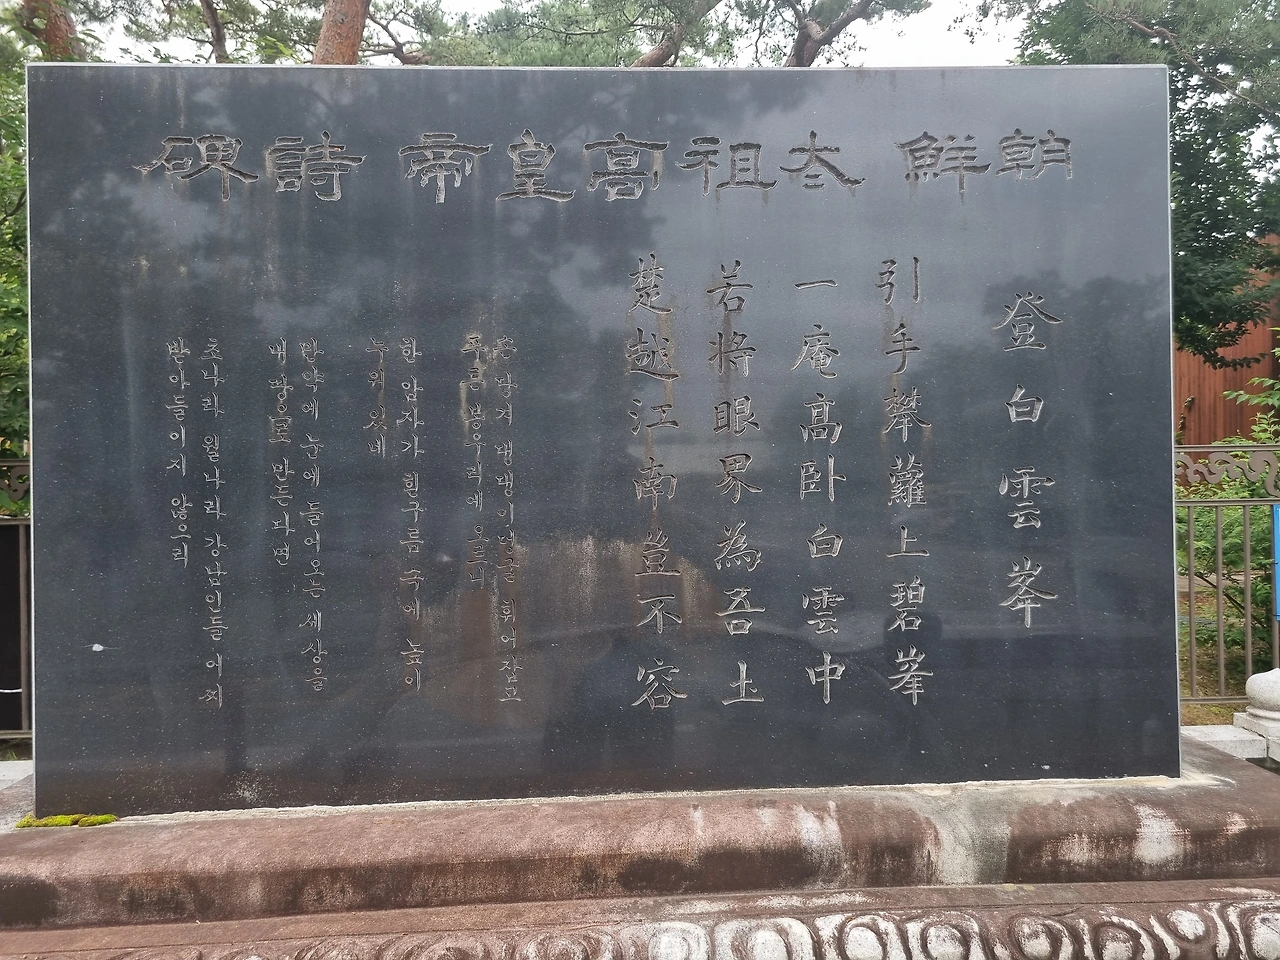 朝鮮 太祖高皇帝 詩碑
登白雲峯
引手攀蘿上碧峯
一庵高卧白雲中
若將眼界為吾土
楚越江南豈不容
손 당겨 댕댕이덩굴 휘어잡고
푸른 봉우리에 오르니
한 암자가 흰구름 속에 높이
누워 있네
만약에 눈에 들어오는 세상을
내 땅으로 만든다면
초나라 월나라 강남인들 어찌
받아들이지 않으리